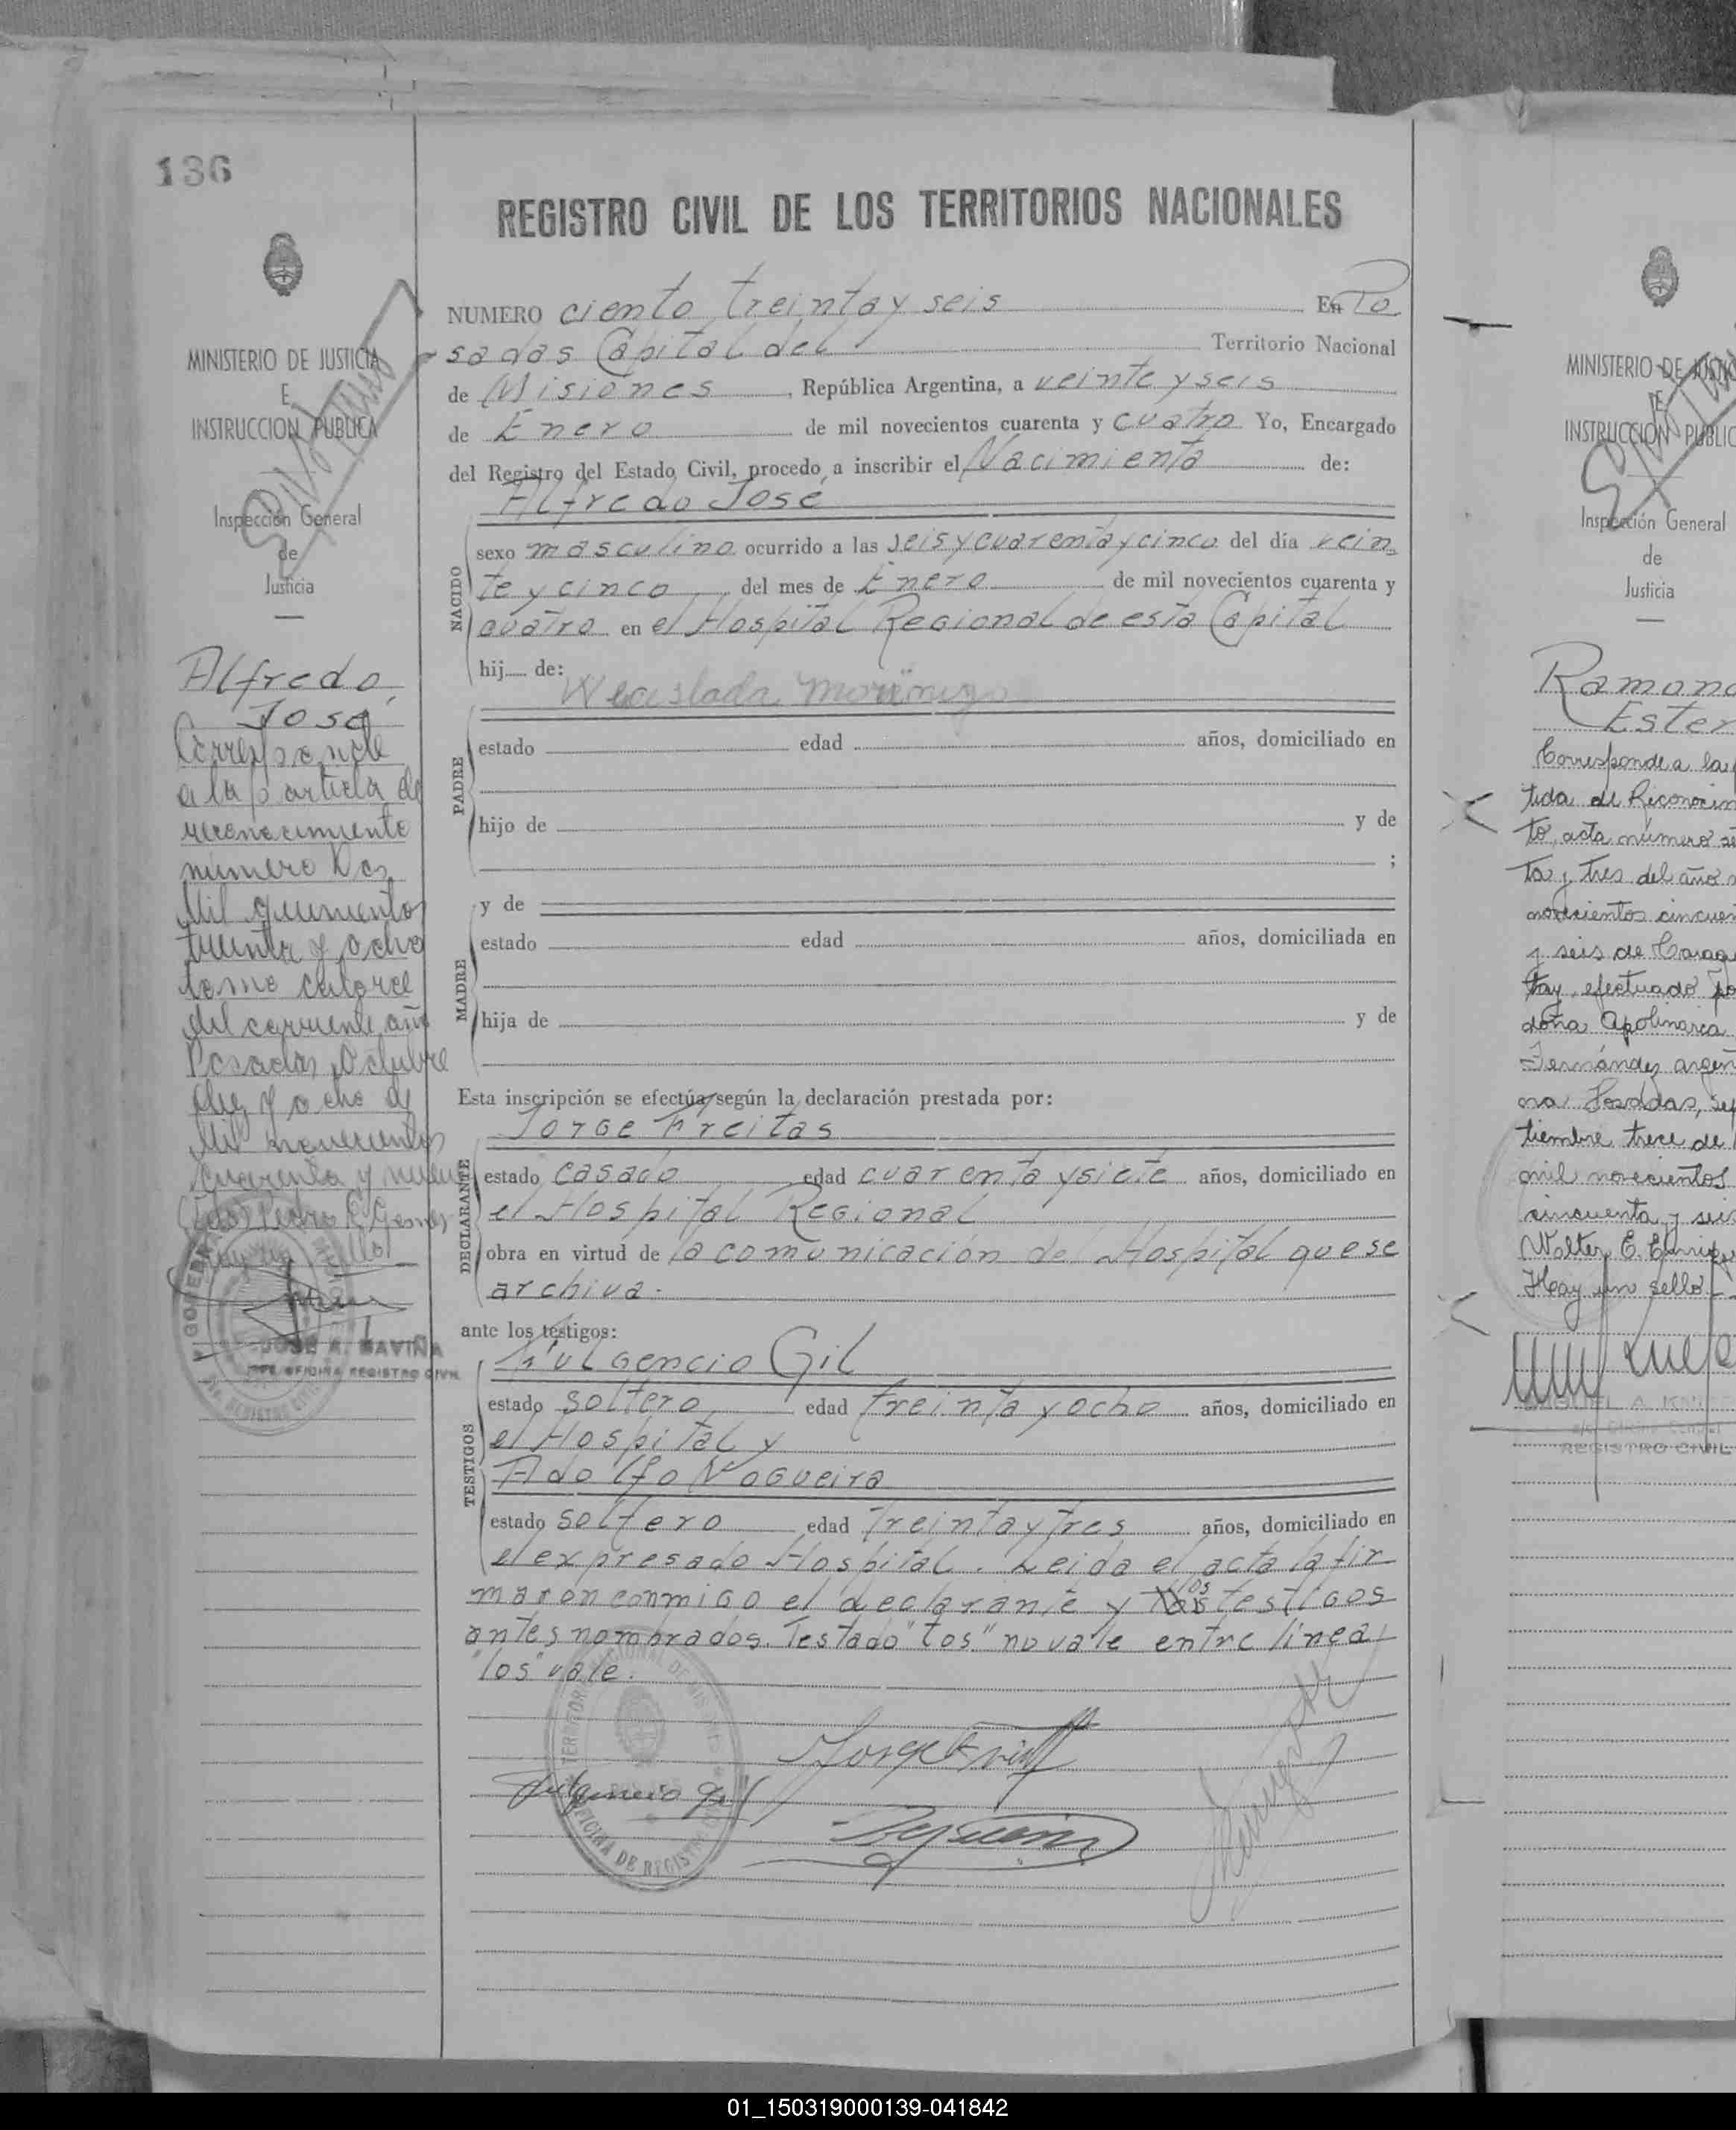 136
REGISTRO CIVIL DE LOS TERRITORIOS NACIONALES
NUMERO ciento treinta y seis En Po
sadas Capital del Territorio Nacional
de Misiones, República Argentina, a veinte y seis
de Enero de mil novecientos cuarenta y cuatro Yo, Encargado
del Registro del Estado Civil, procedo a inscribir el Nacimiento de:
Alfredo José
NACIDO
sexo masculino ocurrido a las seis y cuarenta y cinco del día vein
te y cinco del mes de Enero de mil novecientos cuarenta y
cuatro en el Hospital Regional de esta Capital
hij de:
PADRE
estado edad años, domiciliado en
hijo de y de
;
y de
MADRE
estado edad años, domiciliada en
hija de y de
Esta inscripción se efectúa según la declaración prestada por:
Jorge Freitas
DECLARANTE
estado casado edad cuarenta y siete años, domiciliado en
el Hospital Regional
obra en virtud de la comunicación del Hospital que se
archiva.
ante los testigos:
Fulgencio Gil
TESTIGOS
estado soltero edad treinta y ocho años, domiciliado en
el Hospital y
Adolfo Nogueira
estado soltero edad treinta y tres años, domiciliado en
el expresado Hospital. Leida el acta la fir
maron conmigo el declarante y los testigos
antes nombrados. Testado "tos" no vale entre línea
"los" vale.
Jorge Freitas
Fulgencio Gil
OFICINA DE REGISTRO
MINISTERIO DE JUSTICIA
E
INSTRUCCION PUBLICA
Inspección General
de
Justicia
Alfredo
José
Corresponde
a la partida de
reconocimiento
número Dos
Mil quinientos
treinta y ocho
tomo catorce
del corriente año
Posadas Octubre
diez y ocho de
Mil novecientos
cuarenta y nueve
Pedro R. Gomez
JOSE A. GAVIÑA
JEFE OFICINA REGISTRO CIVIL
MINISTERIO DE JUSTIC
E
INSTRUCCION PUBLIC
Inspección General
de
Justicia
Ramona
Ester
Corresponde a la par
tida de Reconocim
to, acta número se
ta y tres del año
novecientos cincuen
y seis de Garag
hay, efectuado po
doña Apolinaria
Fernández argen
na Posadas, sep
tiembre trece de
mil novecientos
cincuenta y seis
Walter E.
Hay un sello
REGISTRO CIVIL
01_150319000139-041842